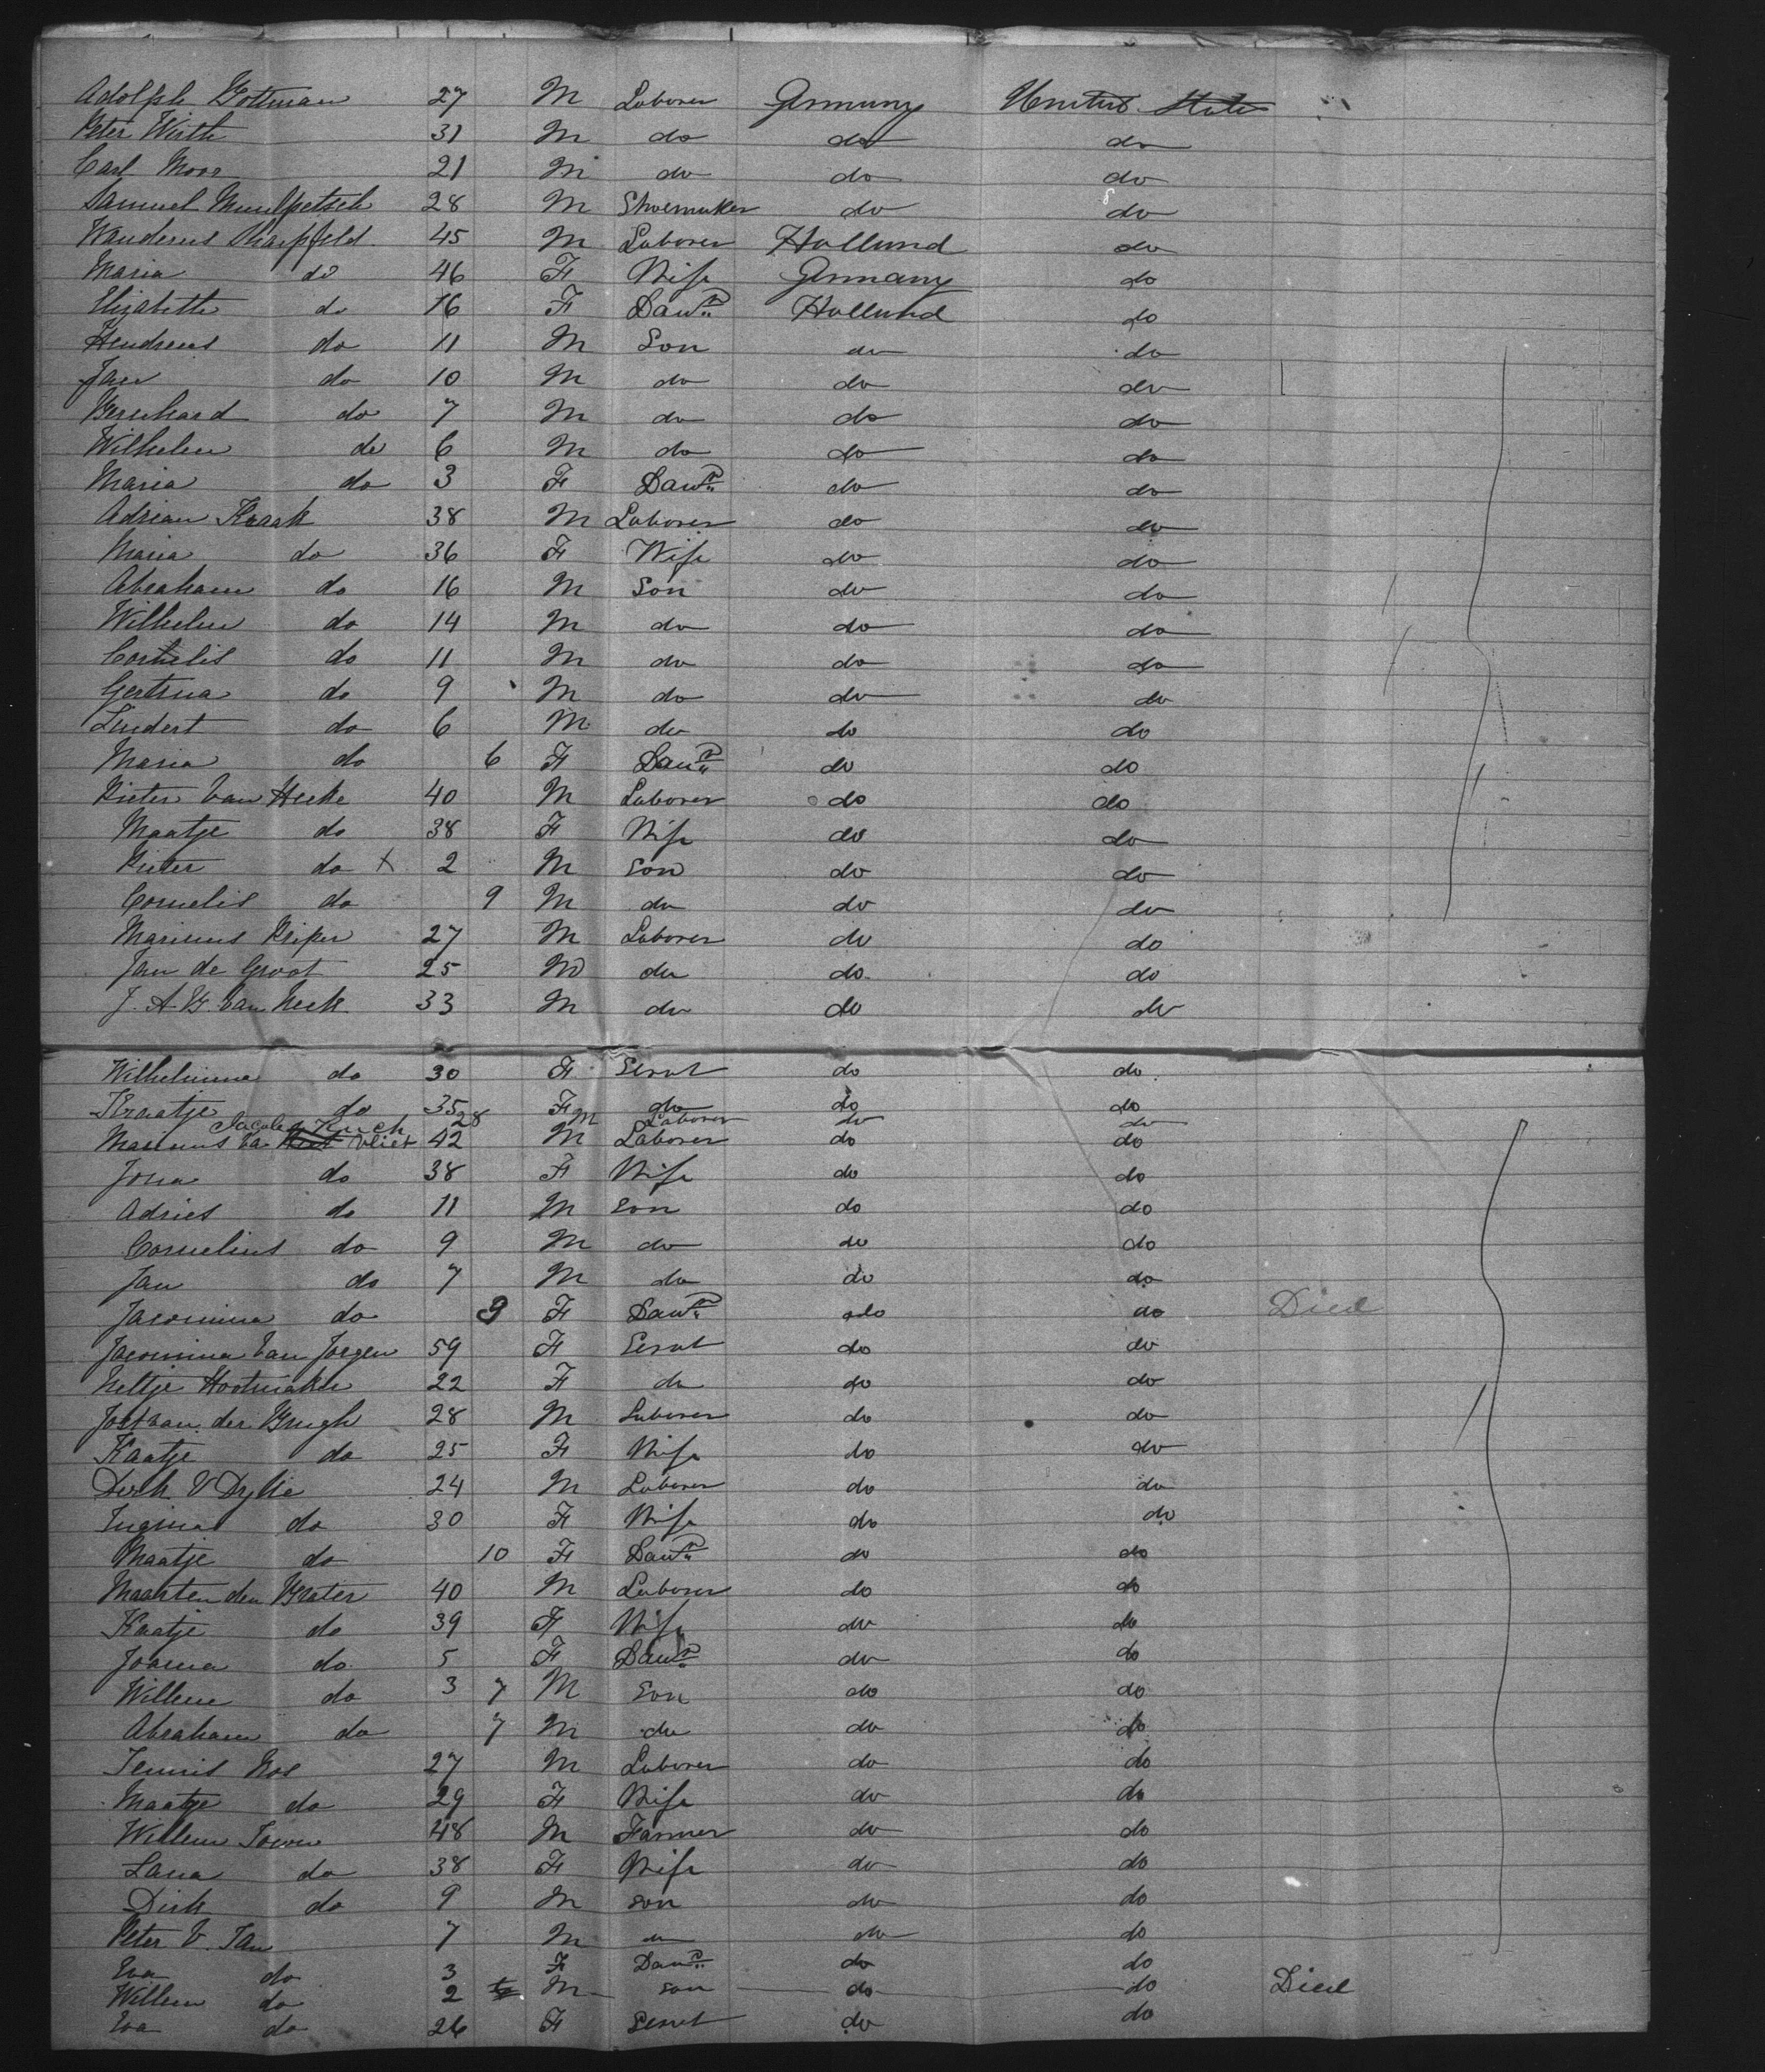 Adolph Gottman 27 M Laborer Germany United States
Peter Wirth 31 M do do do
Carl Moor 21 M do do do
Samuel 28 M Shoemaker do do
45 M Laborer Holland do
Maria do 46 F Wife Germany do
Elizabeth do 16 F Dautr Holland do
Hendricus do 11 M Son do do
Jan do 10 M do do do
Bernhard do 7 M do do do
Wilhelm do 6 M do do do
Maria do 3 F Dautr do do
Adrian 38 M Laborer do do
Maria do 36 F Wife do do
Abraham do 16 M Son do do
Wilhelm do 14 M do do do
Cornelis do 11 M do do do
do 9 M do do do
Lendert do 6 M do do do
Maria do 6 F Dautr do do
Pieter Van Heeke 40 M Laborer do do
Maatje do 38 F Wife do do
Pieter do X 2 M Son do do
Cornelis do 9 M do do do
Marinus 27 M Laborer do do
Jan de Groot 25 M do do do
J. A. B. Van Neck 33 M do do do
Wilhelmina do 30 F Servt do do
do 35 F do do do
Jacob 28 M Laborer do do
Marinus Va Vliet 42 M Laborer do do
do 38 F Wife do do
Adries do 11 M Son do do
Cornelius do 9 M do do do
Jan do 7 M do do do
Jacomina do 9 F Dautr do do Died
Jacomina Van Jorgen 59 F Servt do do
Neltje 22 F do do do
Jost van der Brugh 28 M Laborer do do
Kaatje do 25 F Wife do do
Dirk V Dylke 24 M Laborer do do
do 30 F Wife do do
Maatje do 10 F Dautr do do
Maarten den Brater 40 M Laborer do do
Kaatje do 39 F Wife do do
Joanna do 5 F Dautr do do
Willem do 3 7 M Son do do
Abraham do 7 M do do do
Teunis Vos 27 M Laborer do do
Maatje do 29 F Wife do do
Willem 48 M Farmer do do
Lana do 38 F Wife do do
Dirk do 9 M Son do do
Peter V. Tan 7 M do do do
Eva do 3 F Dautr do do
Willem do 2 M Son do do Died
Eva do 26 F Servt do do